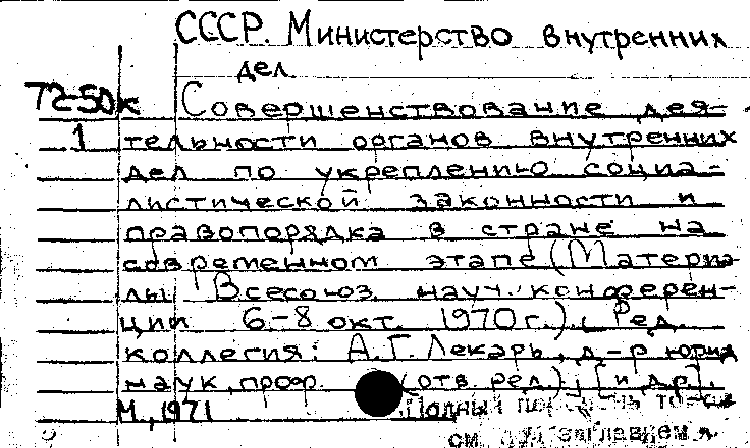 СССР. Министерство внутренних
дел
72-50к Совершенствование дея-
1 тельности органов внутренних
дел по укреплению социа-
листической законности и
правопорядка в стране на
современном этапе (Материа-
лы Всесоюз. науч. конферен-
ции 6-8 окт. 1970 г.). Ред.
коллегия: А.Г. Лекарь, д-р юрид.
наук, проф. (отв. ред.); [и др].
М., 1971 Полный
см. под заглавием